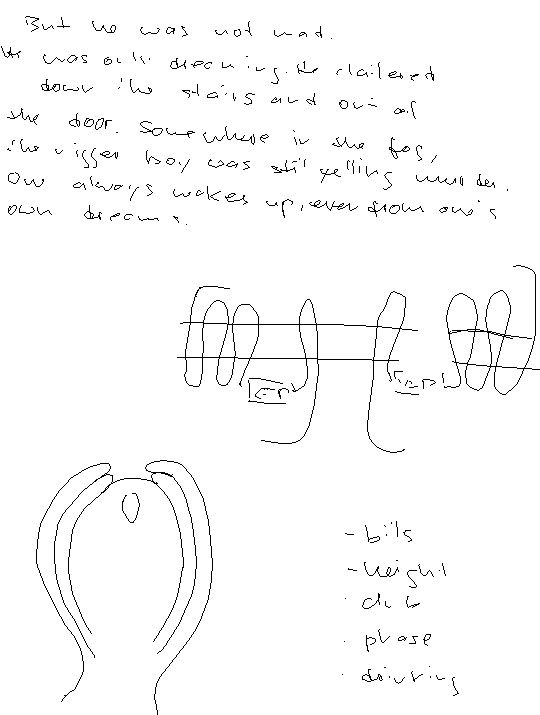 But he was not mad.
He was only dreaming. He clattered
down the stairs and out of
the door. Somewhere in the fog,
the nigger boy was still yelling murder.
One always wakes up, even from one's
own dreams.
- bills
- height
· club
· phase
· drinking